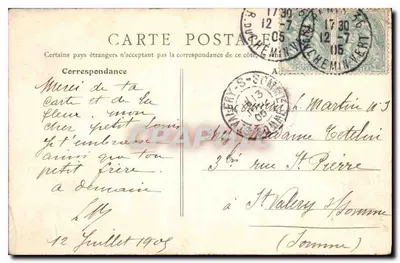 CARTE POSTALE
Certains pays étrangers n'acceptent pas la correspondance de ce côté
Correspondance
Merci de ta
carte et de la
fleur. mon
cher petit Louis
je t'embrasse
ainsi que ton
petit frère.
a demain
12 Juillet 1905
17 30
12 -7
05
R. DU CHEMIN VERT
17 30
12 -7
05
CHEMIN VERT
VALERY-S-SOMME
13
05
L Martin
Madame
3 bis rue St Pierre
à
St Valery s/Somme
(Somme)